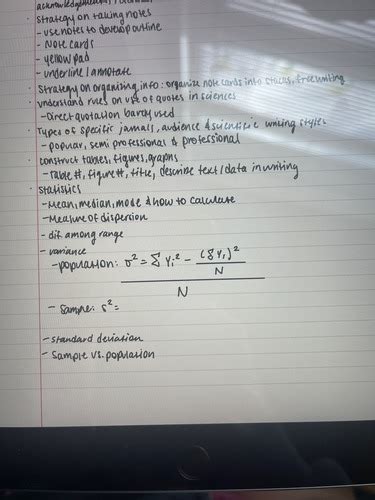 · Strategy on taking notes
- use notes to develop outline
- Note cards
- yellow pad
- underline/annotate
· Strategy on organizing info: organize note cards into stacks, freewriting
· understand rules on use of quotes in sciences
- Direct quotation barely used
· Types of specific journals, audience & scientific writing styles
- popular, semi professional & professional
· construct tables, figures, graphs
- Table #, figure #, title, describe text/data in writing
· Statistics
- Mean, median, mode & how to calculate
- Measure of dispersion
- dif. among range
- variance
- population: σ² = Σ Yi² - (ΣYi)²
N
N
- Sample: s² =
- standard deviation
- Sample vs. population